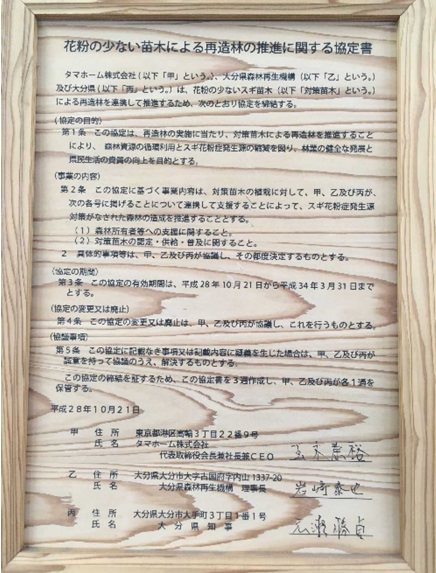 花粉の少ない苗木による再造林の推進に関する協定書
タマホーム株式会社（以下「甲」という。）、大分県森林再生機構（以下「乙」という。）
及び大分県（以下「丙」という。）は、花粉の少ないスギ苗木（以下「対策苗木」という。）
による再造林を連携して推進するため、次のとおり協定を締結する。
（協定の目的）
第１条　この協定は、再造林の実施に当たり、対策苗木による再造林を推進すること
により、森林資源の循環利用とスギ花粉症発生源の縮減を図り、林業の健全な発展と
県民生活の資質の向上を目的とする。
（事業の内容）
第２条　この協定に基づく事業内容は、対策苗木の植栽に対して、甲、乙及び丙が、
次の各号に掲げることについて連携して支援することによって、スギ花粉症発生源
対策がなされた森林の造成を推進することとする。
（１）森林所有者等への支援に関すること。
（２）対策苗木の認定・供給・普及に関すること。
２　具体的事項等は、甲、乙及び丙が協議し、その都度決定するものとする。
（協定の期間）
第３条　この協定の有効期間は、平成２８年１０月２１日から平成３４年３月３１日まで
とする。
（協定の変更又は廃止）
第４条　この協定の変更又は廃止は、甲、乙及び丙が協議し、これを行うものとする。
（協議事項）
第５条　この協定に記載なき事項又は記載内容に疑義を生じた場合は、甲、乙及び丙が
誠意を持って協議のうえ、解決するものとする。
この協定の締結を証するため、この協定書を３通作成し、甲、乙及び丙が各１通を
保管する。
平成２８年１０月２１日
甲　住　所　東京都港区高輪３丁目２２番９号
氏　名　タマホーム株式会社
代表取締役会長兼社長兼ＣＥＯ　玉木康裕
乙　住　所　大分県大分市大字古国府字内山1337-20
氏　名　大分県森林再生機構　理事長　岩﨑泰也
丙　住　所　大分県大分市大手町３丁目１番１号
氏　名　大　分　県　知　事　広瀬勝貞